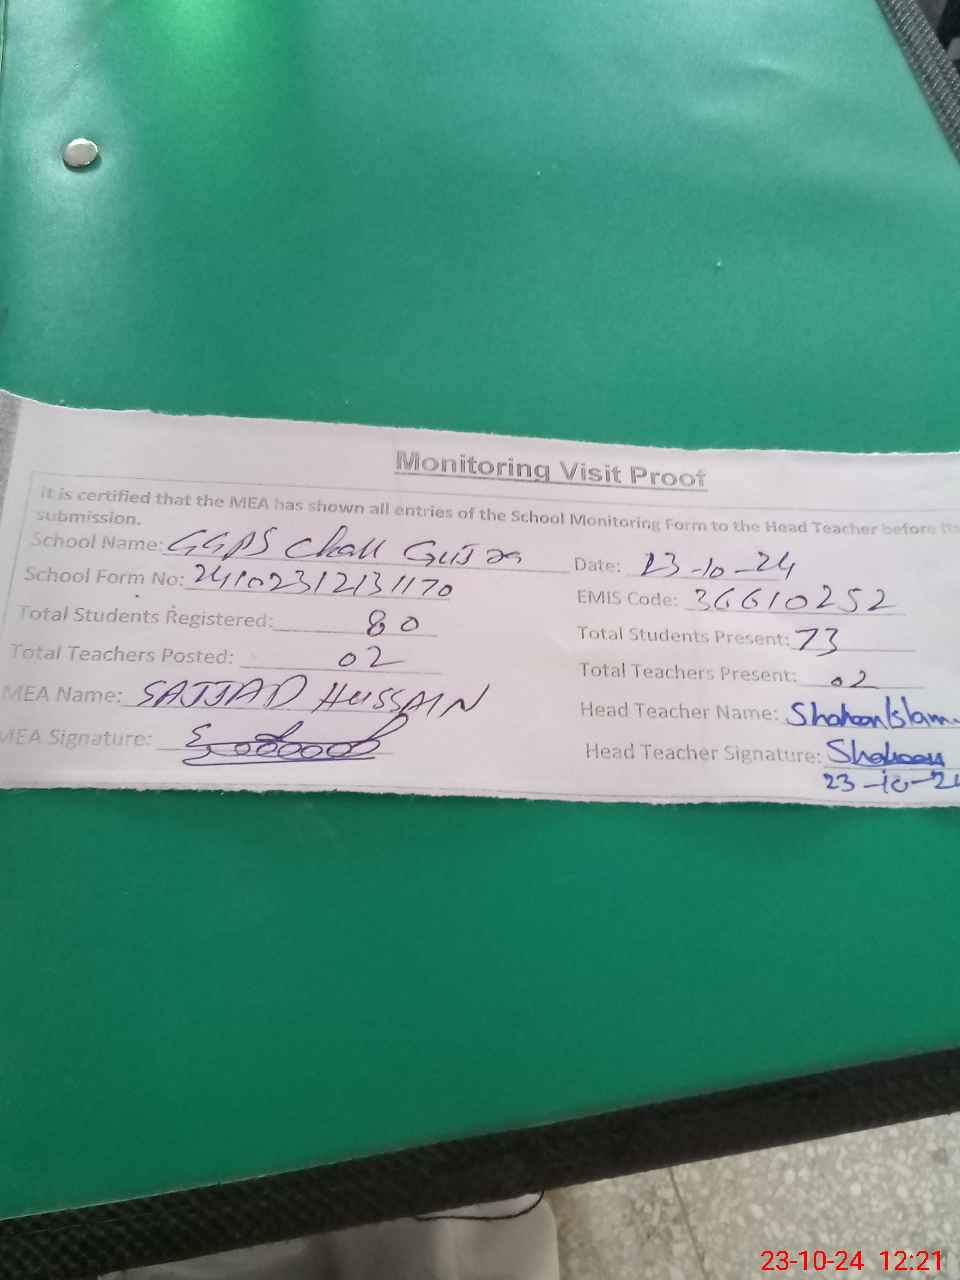 Monitoring Visit Proof
It is certified that the MEA has shown all entries of the School Monitoring Form to the Head Teacher before its
submission.
School Name: GGPS Chak Gujran Date: 23-10-24
School Form No: 24102312131170 EMIS Code: 36610252
Total Students Registered: 80 Total Students Present: 73
Total Teachers Posted: 02 Total Teachers Present: 02
MEA Name: SAJJAD HUSSAIN Head Teacher Name: Islam
MEA Signature: Head Teacher Signature:
23-10-24
23-10-24 12:21